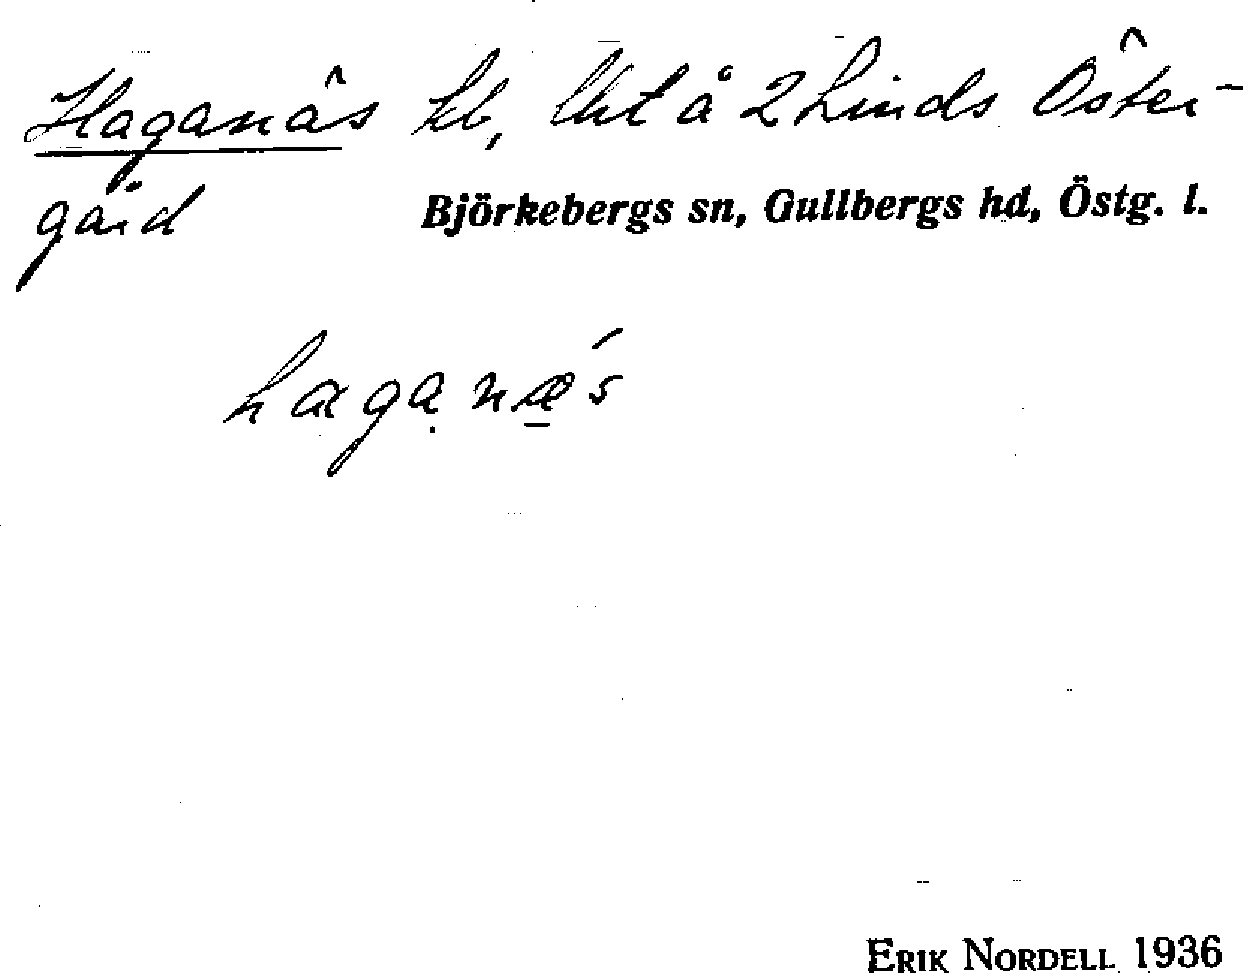 Haganäs lb, lht å 2 Linds Öster-
gård
Björkebergs sn, Gullbergs hd, Östg. l.
haganæ´s
ERIK NORDELL 1936